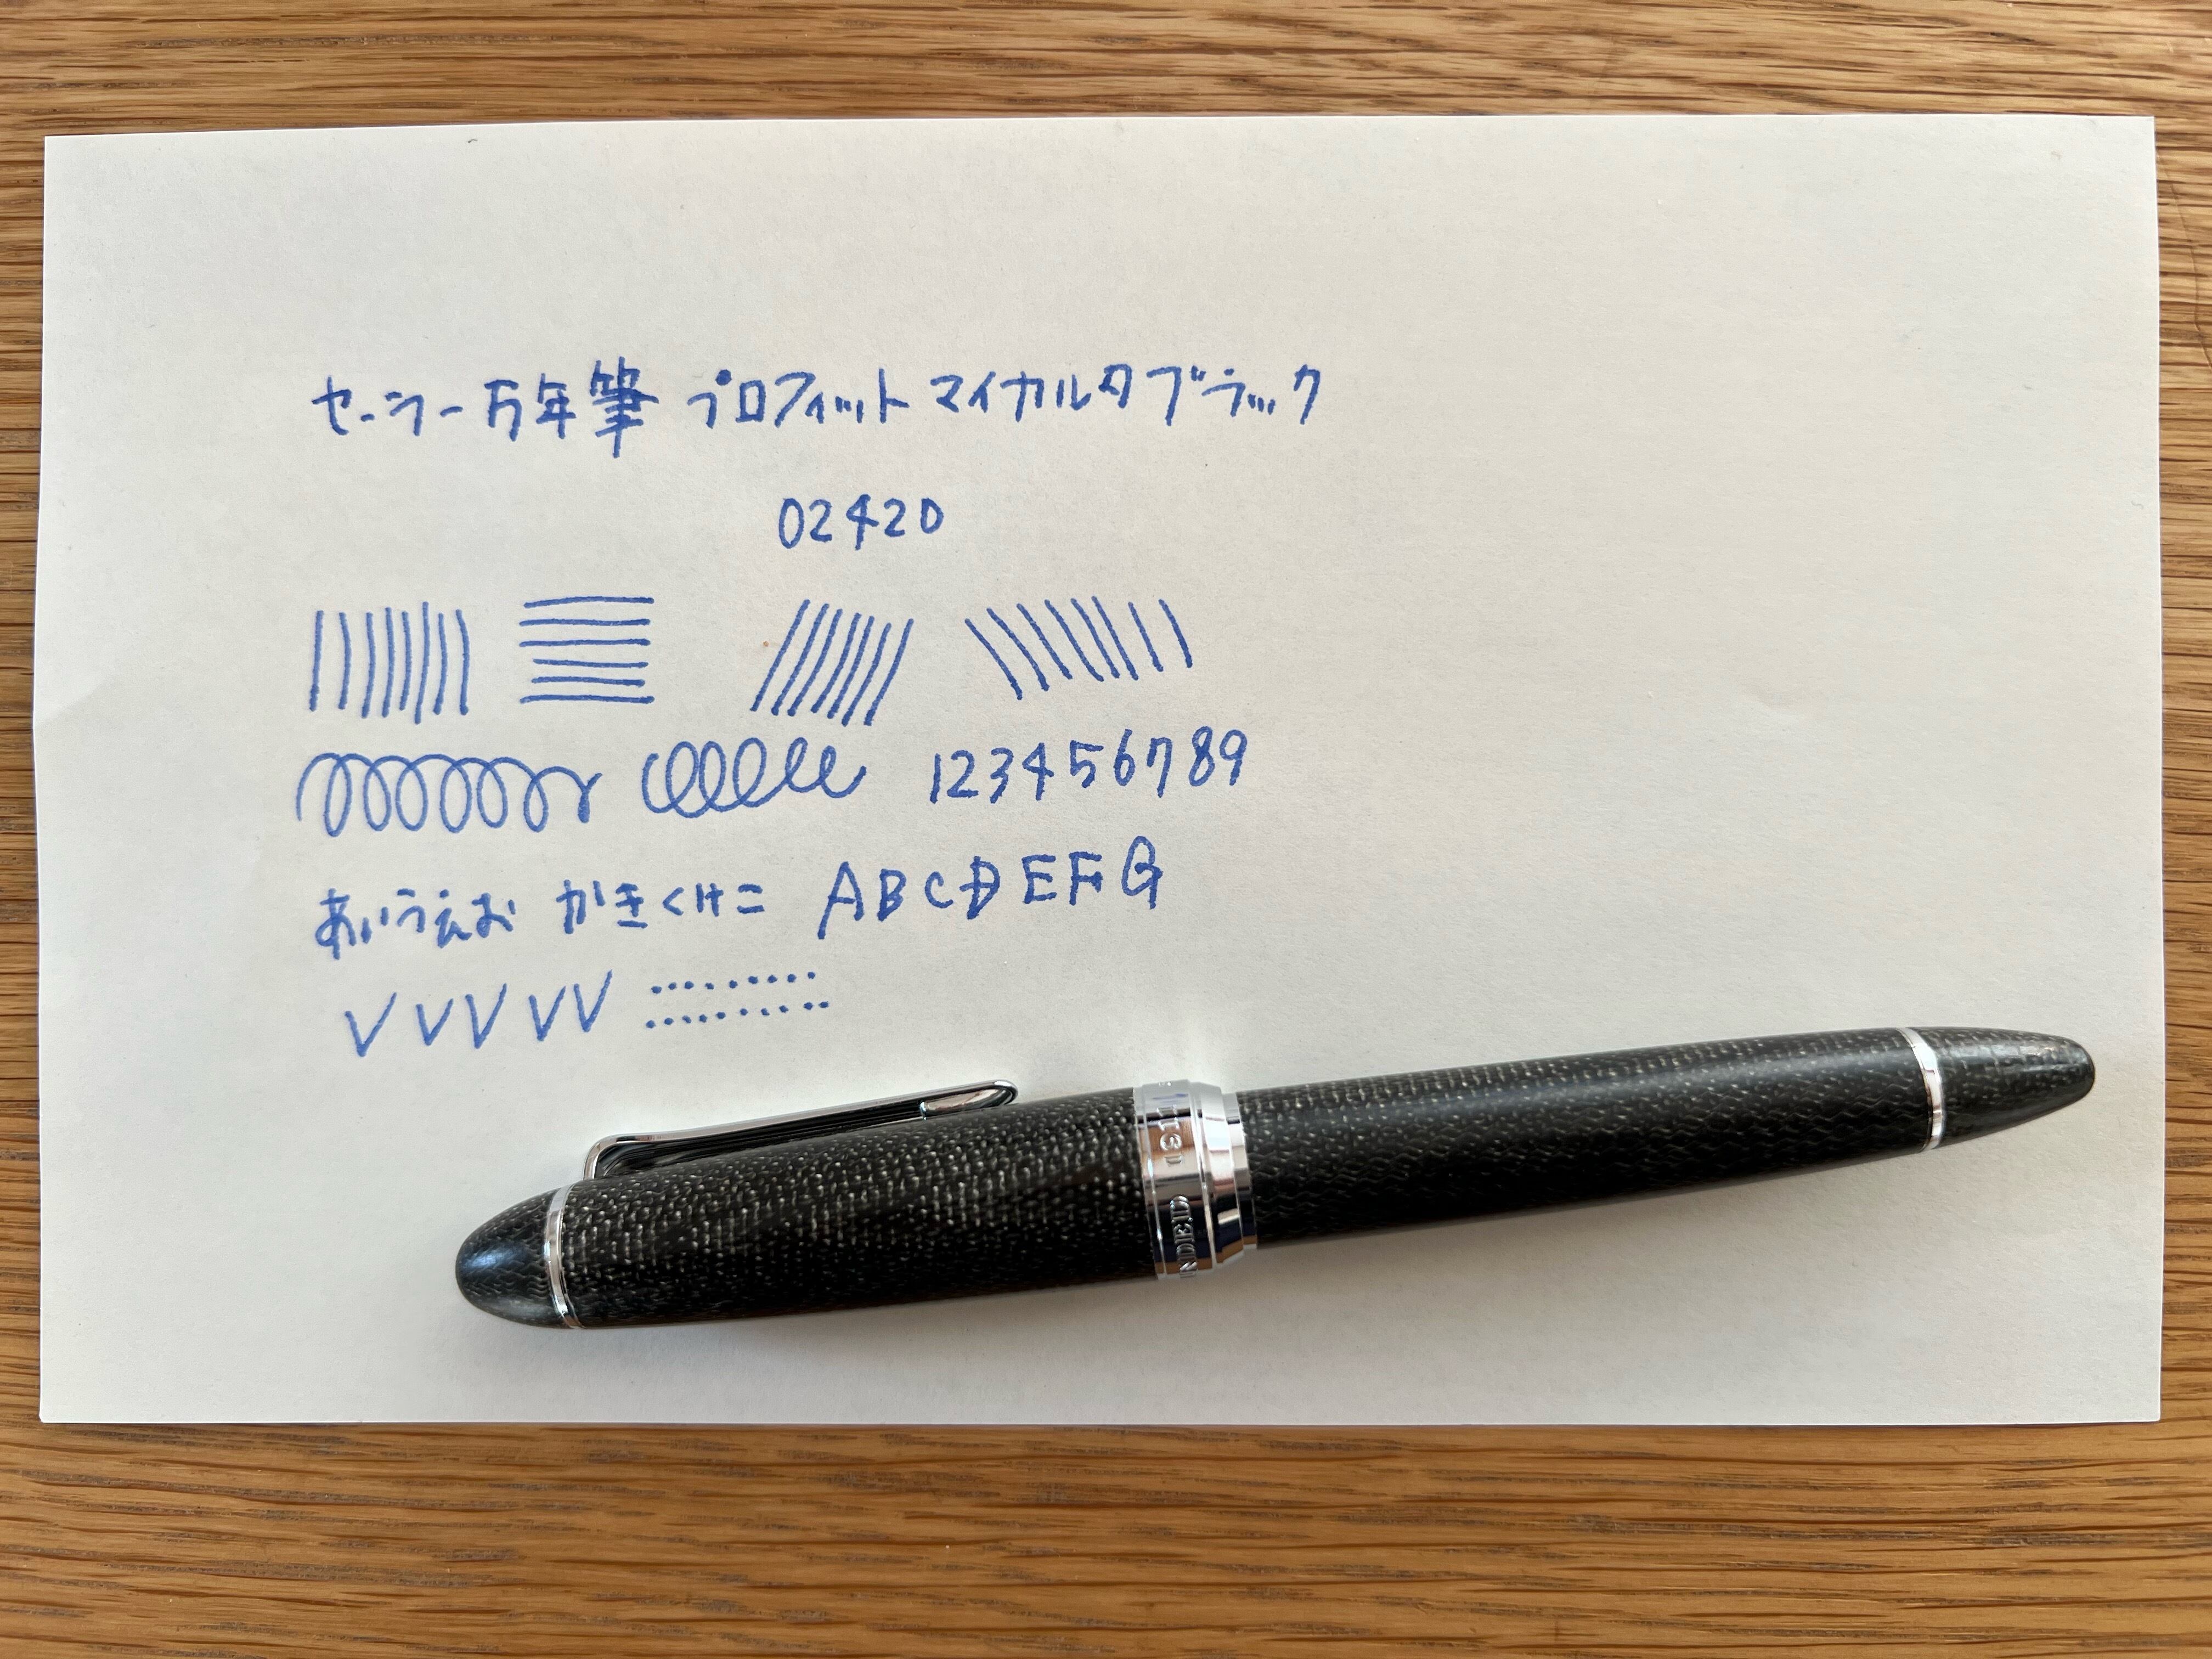 セーラー万年筆 プロフィット マイカルタ ブラック
02420
123456789
あいうえお かきくけこ ABCDEFG
VVVVV
1911
NDED